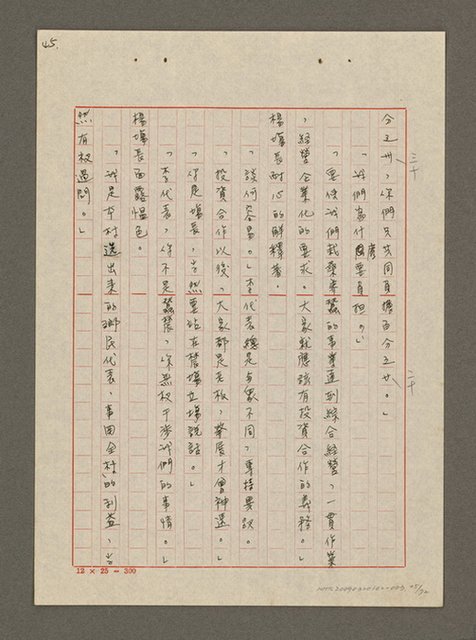 45.
分之卅，你們只共同負擔百分之廿。」
三十
二十
「我們為什麼要負担？」
「要使我們栽桑養蠶的事業達到綜合經營，一貫作業
，經營企業化的要求。大家就應該有投資合作的義務。」
楊場長耐心的解釋着。
「談何容易。」李代表總是與眾不同，專持異說。
「投資合作以後，大家都是老板，發展才會神速。」
「你是場長，當然要站在農場立場說話。」
「李代表，你不是蠶農，你無权干涉我們的事情。」
楊場長面露慍色。
「我是本村選出來的鄉民代表，事因全村的利益，當
然有权過問。」
12 × 25 = 300